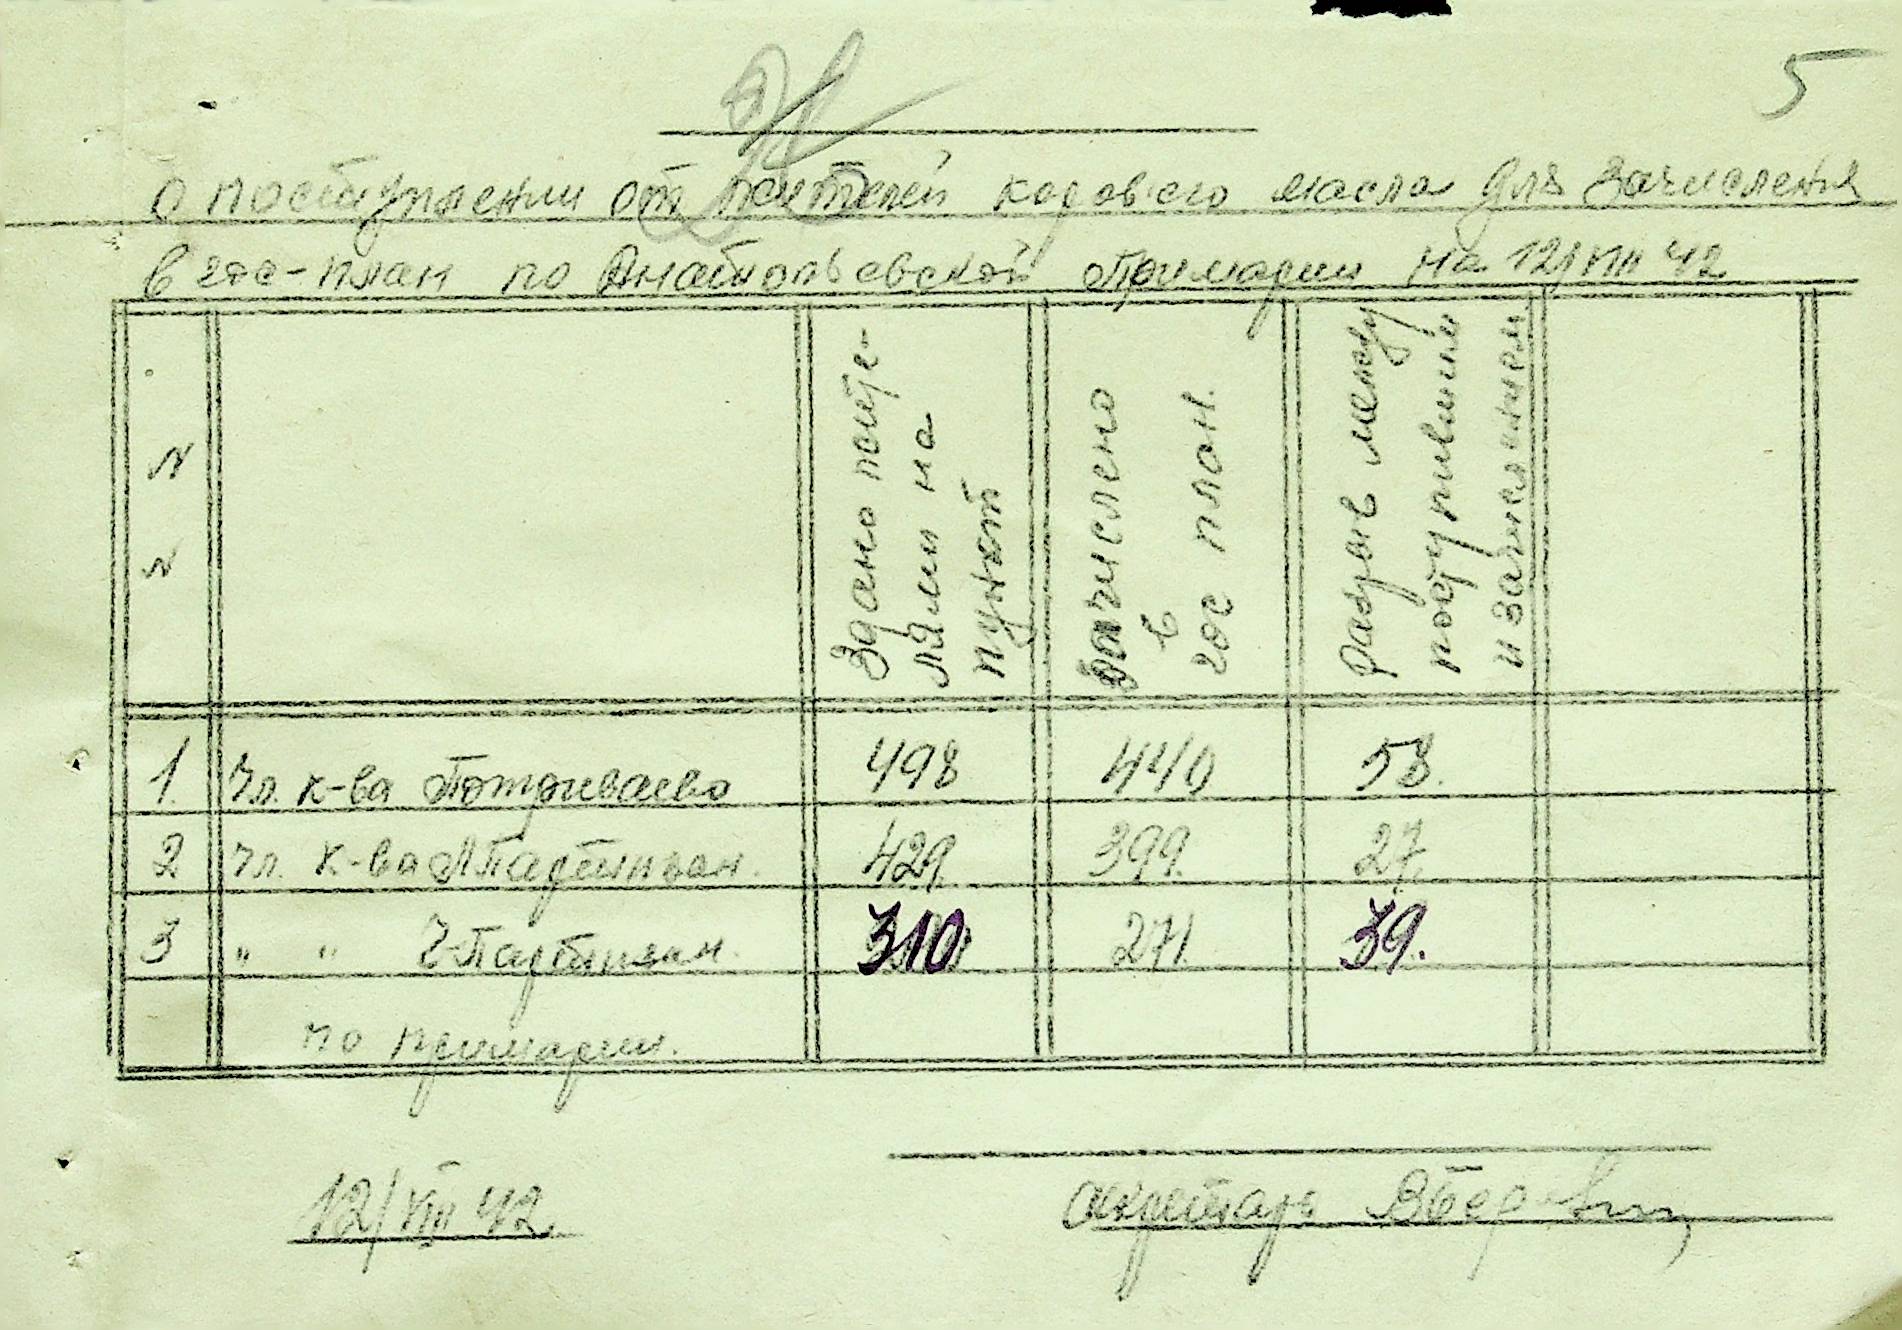 5
о поступлении от жителей коровего масла для зачисления
в гос-план по Анатольевской Примарии на 12/VIII 42
N N
Здано жите-
лями на
пункт
Зачислено
в
гос план.
Разрыв между
поступившим
и зачислением
1. чл. к-ва Потриваево 498 440 58.
2 чл. к-ва А Партизан. 429. 399. 27.
3 " " Ч-Партизан. 310 271. 39.
по примарии.
12/VIII 42.
секретарь